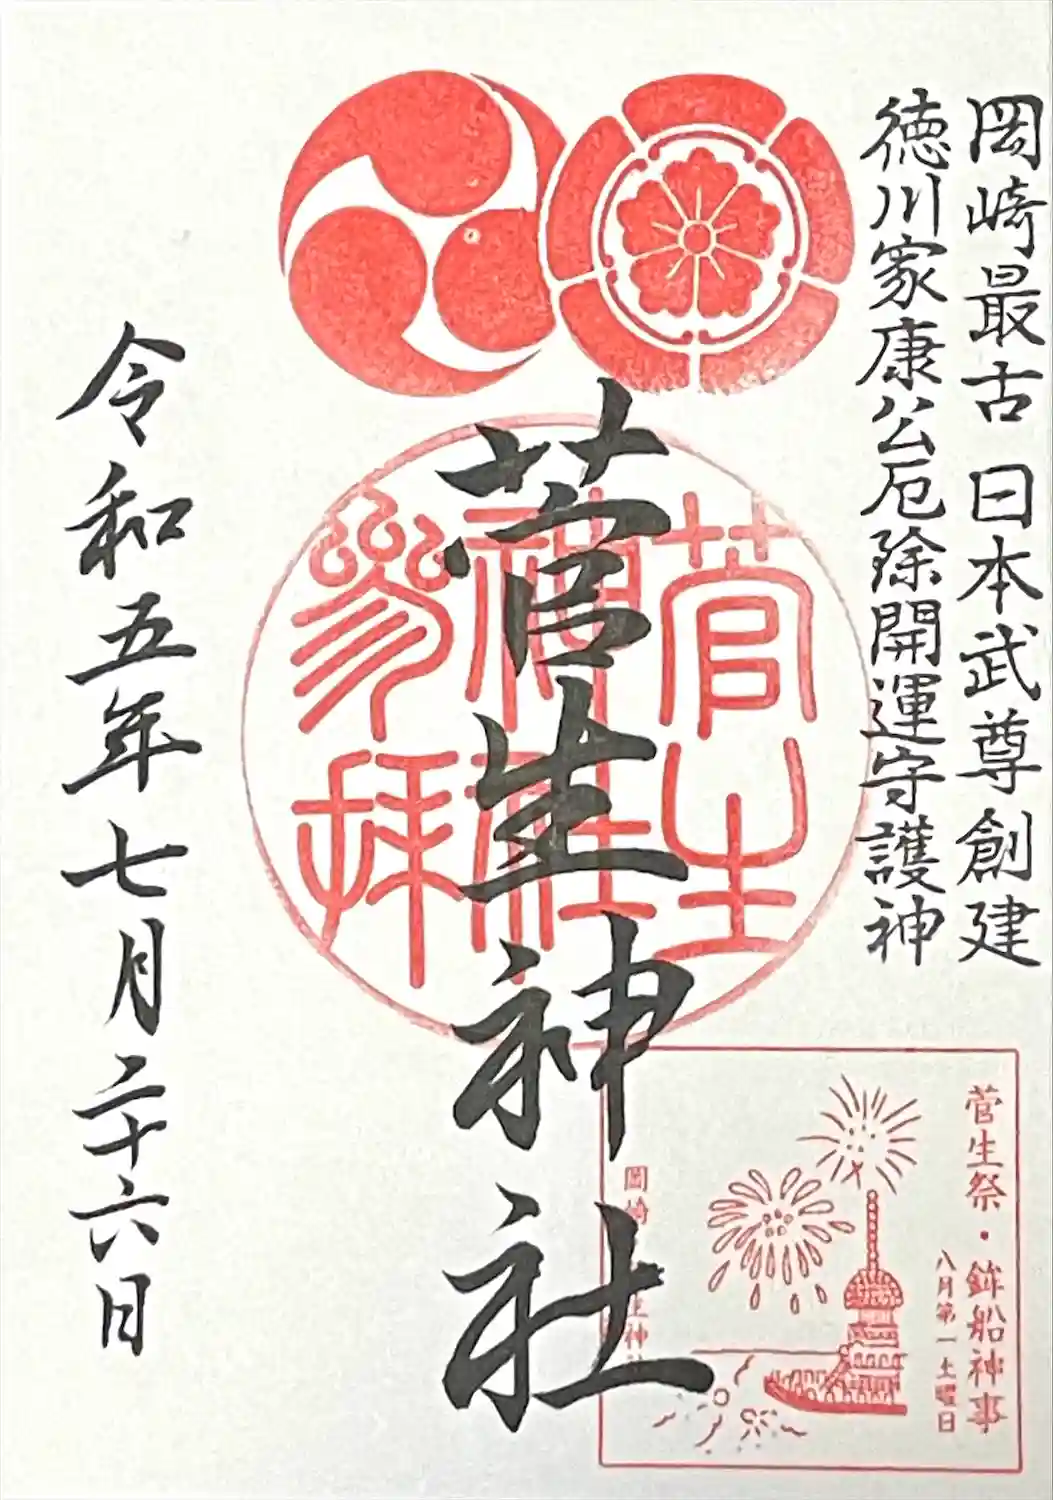 岡崎最古 日本武尊創建
徳川家康公厄除開運守護神
菅生神社
菅生
神社
参拝
令和五年七月二十六日
菅生祭・鉾船神事
八月第一土曜日
岡崎 生神社